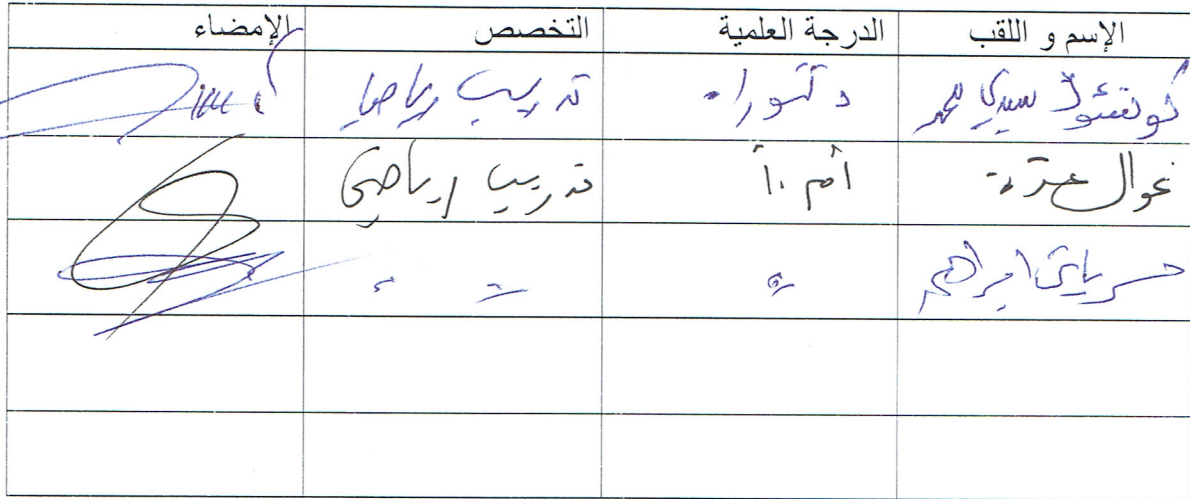 الإسم و اللقب الدرجة العلمية التخصص الإمضاء
كوتشوك سيدي محمد دكتوراه تدريب رياضي
غوال عدة أم . أ تدريب رياضي
ابراهيم